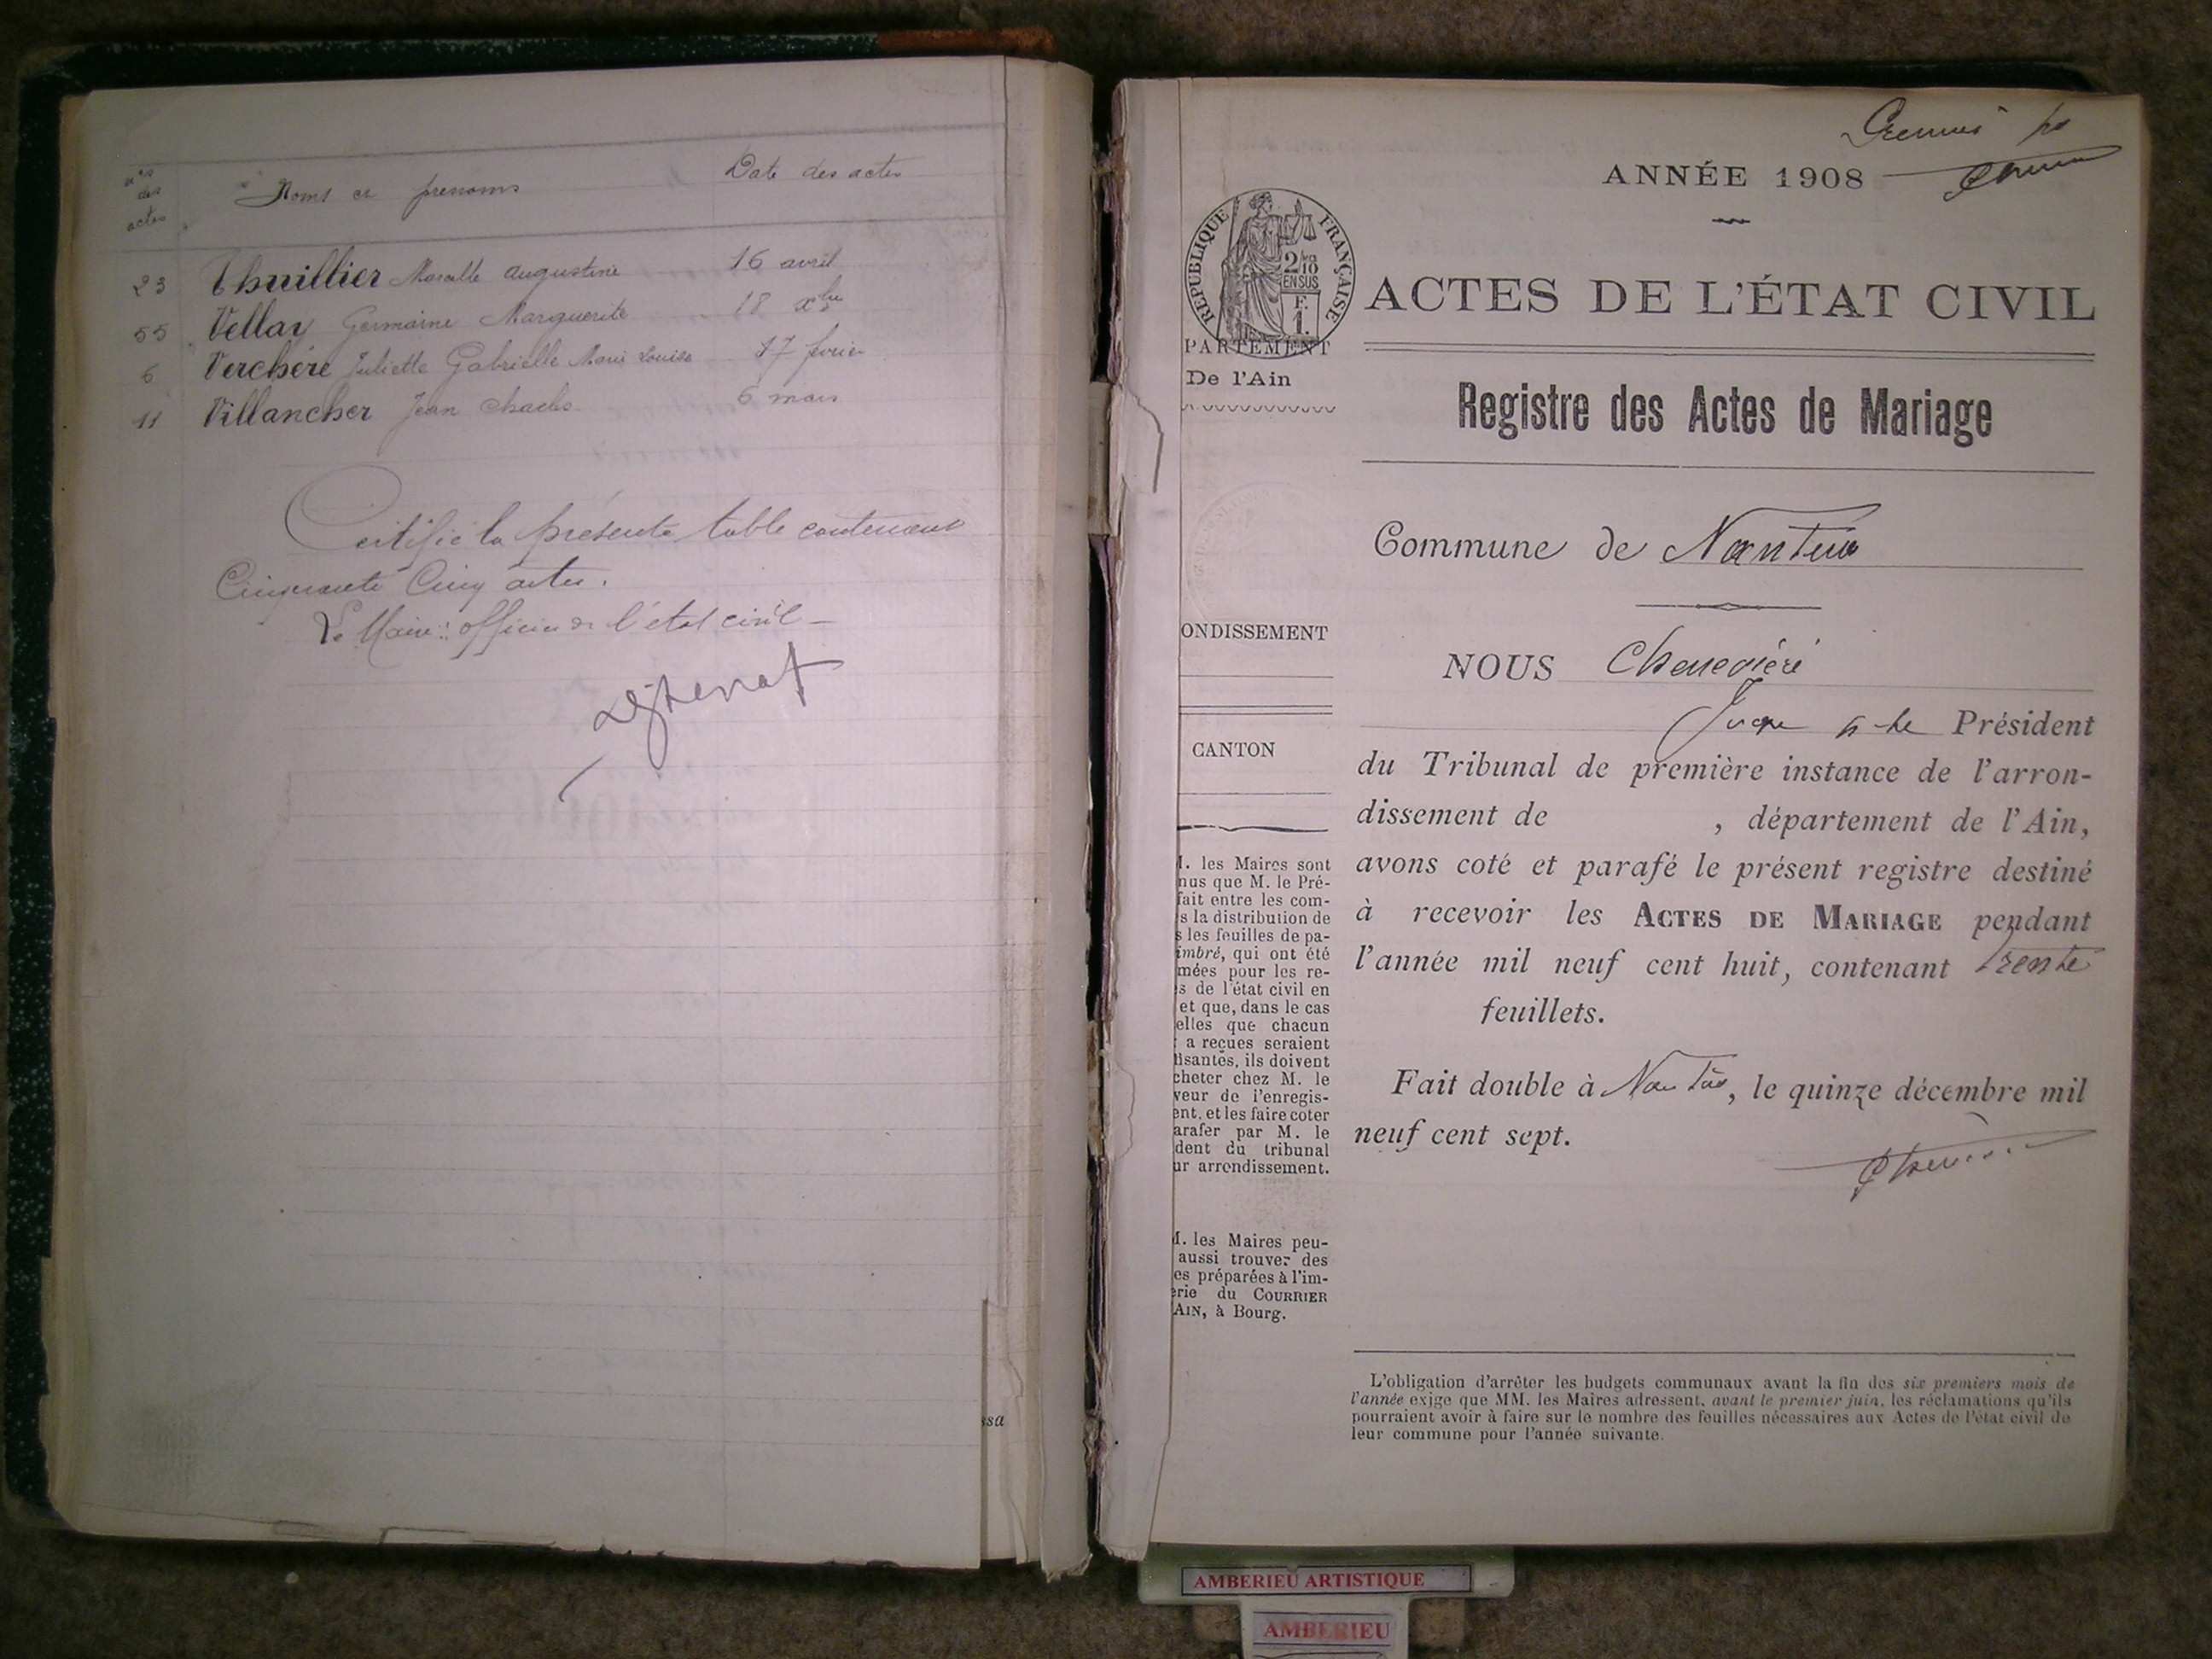 nos des actes
Noms et prenoms
Date des actes
23 Thuillier Marcelle Augustine 16 avril
55 Vellay Germaine Marguerite 18 xbre
6 Verchère Juliette Gabrielle Marie Louise 17 fevrier
11 Villancher Jean Charles 6 mars
Certifié la présente table contenant
Cinquante Cinq actes.
Le Maire : officier de l'état civil
ssa
Premier fo
ANNÉE 1908
REPUBLIQUE FRANÇAISE
2/10
EN SUS
F.
1.
PARTEMENT
De l'Ain
ONDISSEMENT
CANTON
M. les Maires sont
nus que M. le Pré-
fait entre les com-
s la distribution de
s les feuilles de pa-
imbré, qui ont été
mées pour les re-
s de l'état civil en
et que, dans le cas
elles que chacun
a reçues seraient
fisantes, ils doivent
cheter chez M. le
veur de l'enregis-
ent. et les faire coter
arafer par M. le
dent du tribunal
ur arrondissement.
M. les Maires peu-
aussi trouver des
es préparées à l'im-
erie du COURRIER
AIN, à Bourg.
ACTES DE L'ÉTAT CIVIL
Registre des Actes de Mariage
Commune de Nantua
NOUS Chenevière
Juge Président
du Tribunal de première instance de l'arron-
dissement de , département de l'Ain,
avons coté et parafé le présent registre destiné
à recevoir les ACTES DE MARIAGE pendant
l'année mil neuf cent huit, contenant trente
feuillets.
Fait double à Nantua, le quinze décembre mil
neuf cent sept.
L'obligation d'arrêter les budgets communaux avant la fin des six premiers mois de
l'année exige que MM. les Maires adressent, avant le premier juin, les réclamations qu'ils
pourraient avoir à faire sur le nombre des feuilles nécessaires aux Actes de l'état civil de
leur commune pour l'année suivante.
AMBERIEU ARTISTIQUE
AMBERIEU